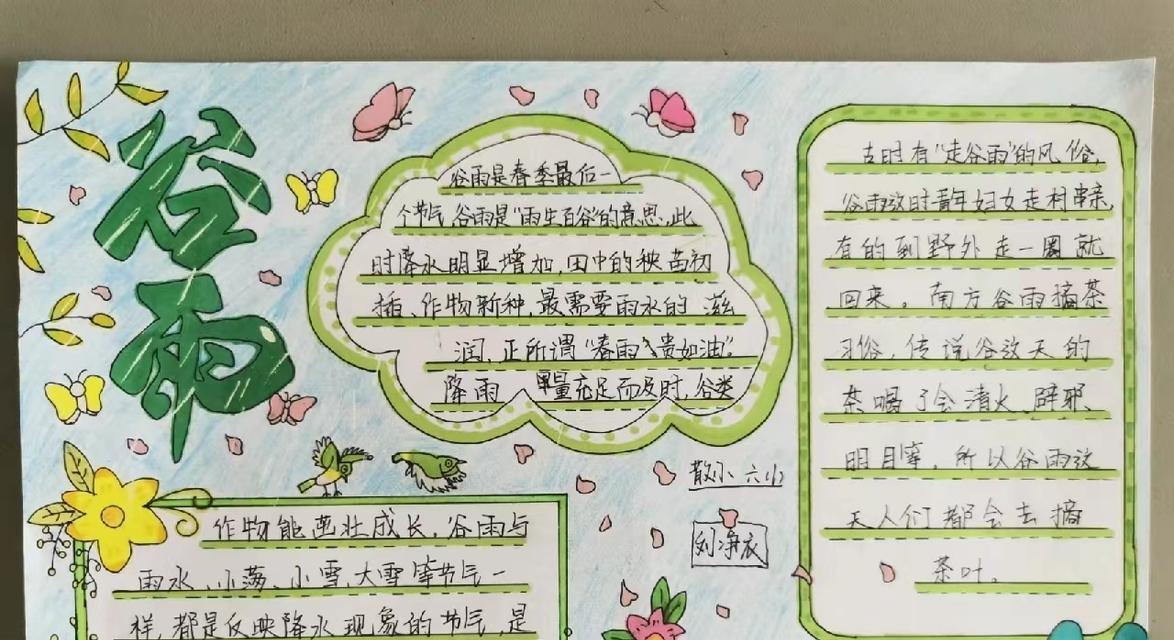 谷雨
谷雨是春季最后一
个节气,谷雨是“雨生百谷”的意思,此
时降水明显增加,田中的秧苗初
插、作物新种,最需要雨水的滋
润,正所谓“春雨贵如油”。
降雨量充足而及时,谷类
作物能茁壮成长,谷雨与
雨水、小满、小雪,大雪等节气一
样,都是反映降水现象的节气,是
散小六(1)
古时有“走谷雨”的风俗,
谷雨这时青年妇女走村串亲,
有的到野外走一圈就
回来。南方谷雨摘茶
习俗,传说谷这天的
茶喝了会清火,辟邪、
明目等,所以谷雨这
天人们都会去摘
茶叶。